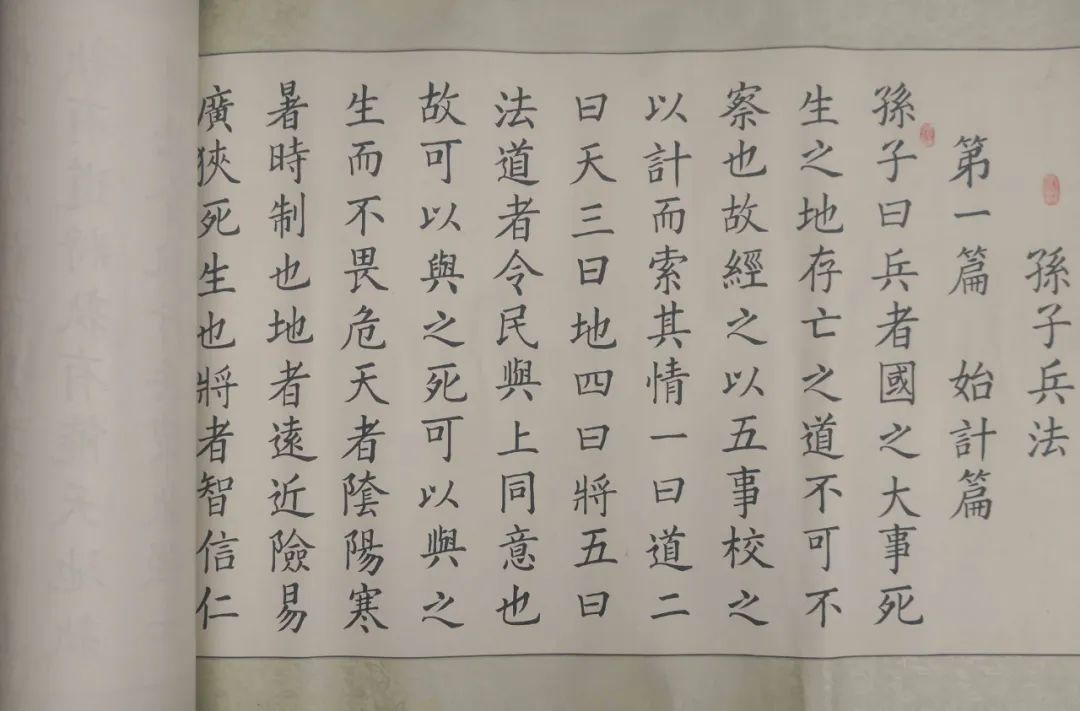 孫子兵法
第一篇 始計篇
孫子曰兵者國之大事死
生之地存亡之道不可不
察也故經之以五事校之
以計而索其情一曰道二
曰天三曰地四曰將五曰
法道者令民與上同意也
故可以與之死可以與之
生而不畏危天者陰陽寒
暑時制也地者遠近險易
廣狹死生也將者智信仁